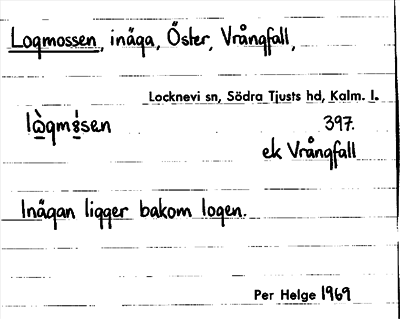 Logmossen, inäga, Öster, Vrångfall,
Locknevi sn, Södra Tjusts hd, Kalm. l.
lò̱gmǻ̱sen 397.
ek Vrångfall
Inägan ligger bakom logen.
Per Helge 1969